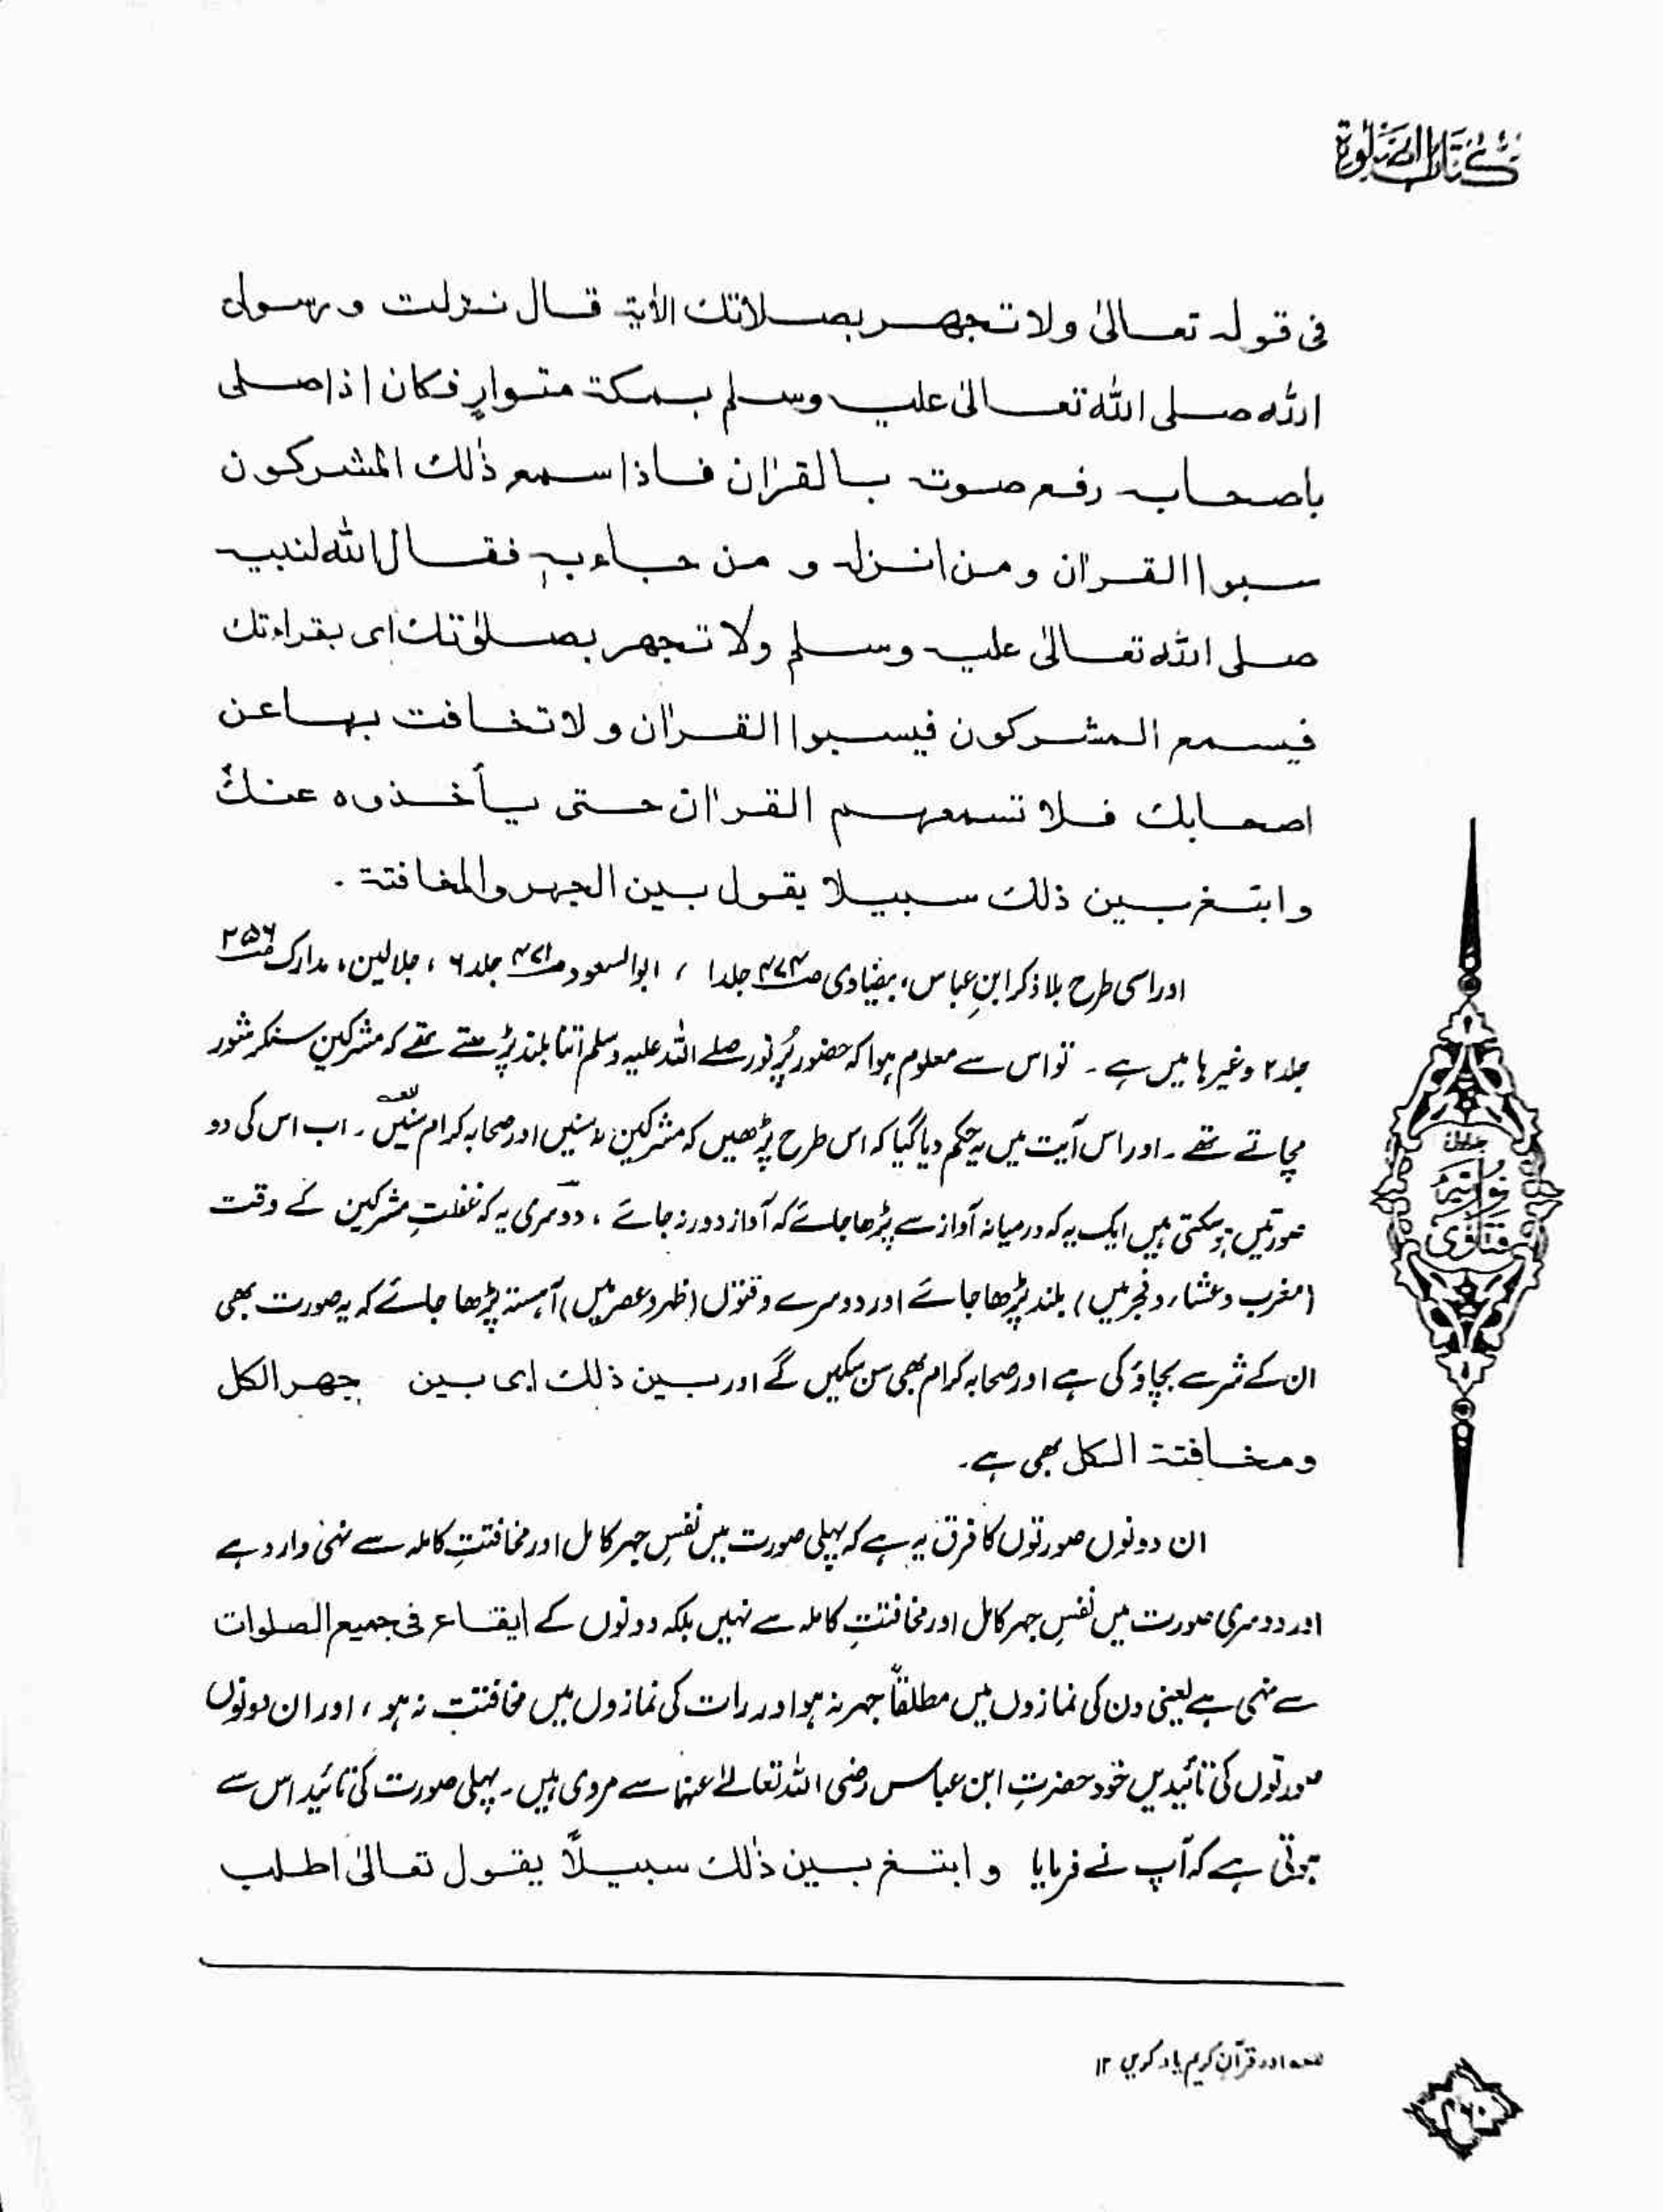 كتاب الصلوٰة
فی قولہ تعالیٰ ولا تجھر بصلاتك الأیۃ قال نزلت و رسول
اللہ صلی اللہ تعالیٰ علیہ وسلم بمکۃ متوارٍ فکان اذا صلی
باصحابہ رفع صوتہ بالقراٰن فاذا سمع ذٰلك المشرکون
سبوا القراٰن ومن انزلہ و من جاء بہٖ فقال اللہ لنبیہ
صلی اللہ تعالیٰ علیہ وسلم ولا تجھر بصلٰوتك ای بقراءتك
فیسمع المشرکون فیسبوا القراٰن ولا تخافت بہا عن
اصحابك فلا تسمعہم القراٰن حتی یأخذوہ عنك
وابتغ بین ذلك سبیلا یقول بین الجہر والمخافتۃ ۔
اور اسی طرح بلا ذکر ابنِ عباس، بیضاوی ص۴۷۳ جلد۱ ، ابوالسعود ص۴۷۱ جلد ۶ ، جلالین، مدارک ص۲۵۶
جلد ۲ وغیرہا میں ہے ۔ تو اس سے معلوم ہوا کہ حضور پُرنور صلے اللہ علیہ وسلم اتنا بلند پڑھتے تھے کہ مشرکین سنکر شور
مچاتے تھے ۔ اور اس آیت میں یہ حکم دیا گیا کہ اس طرح پڑھیں کہ مشرکین نہ سنیں اور صحابہ کرام سنیں ؎ ۔ اب اس کی دو
صورتیں ہو سکتی ہیں ایک یہ کہ درمیانہ آواز سے پڑھا جائے کہ آواز دور نہ جائے ، دوسری یہ کہ غفلتِ مشرکین کے وقت
(مغرب وعشاء وفجر میں) بلند پڑھا جائے اور دوسرے وقتوں (ظہر وعصر میں) آہستہ پڑھا جائے کہ یہ صورت بھی
ان کے شر سے بچاؤ کی ہے اور صحابہ کرام بھی سن سکیں گے اور بین ذلك ای بین جھر الکل
ومخافتۃ الکل بھی ہے۔
ان دونوں صورتوں کا فرق یہ ہے کہ پہلی صورت میں نفسِ جہر کامل اور مخافتتِ کاملہ سے نہی وارد ہے
اور دوسری صورت میں نفسِ جہر کامل اور مخافتتِ کاملہ سے نہیں بلکہ دونوں کے ایقاع فی جمیع الصلوات
سے نہی ہے یعنی دن کی نمازوں میں مطلقاً جہر نہ ہو اور رات کی نمازوں میں مخافتت نہ ہو ، اور ان دونوں
صورتوں کی تائیدیں خود حضرتِ ابن عباس رضی اللہ تعالےٰ عنہما سے مروی ہیں ۔ پہلی صورت کی تائید اس سے
ہوتی ہے کہ آپ نے فرمایا وابتغ بین ذٰلك سبیلاً یقول تعالیٰ اطلب
جلد
فتاوٰی
نوریہ
؎ اور قرآن کریم یاد کریں ۱۲